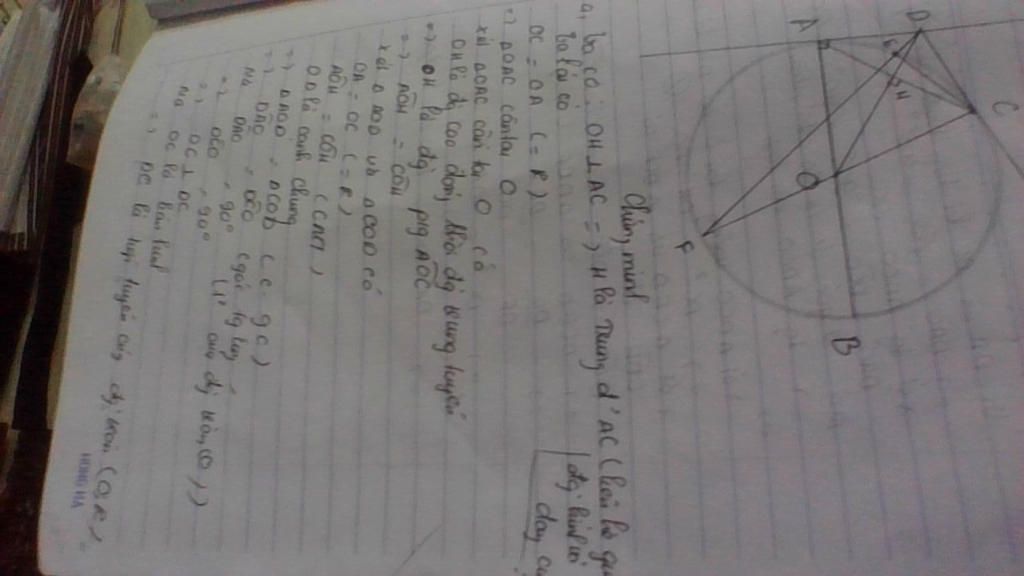 D
A
C
H
O
F
B
Chứng minh
a, Ta có: OH ⊥ AC => H là trung đ' AC (liên hệ
đg kính và
dây
Ta lại có
OC = OA (= R)
=> ΔOAC cân tại O
Xét ΔOAC cân tại O có
OH là đg cao đồng thời đg trung tuyến
=> OH là đg pg AOC
=> AOH = COH
Xét ΔAOD và ΔCOD có
OA = OC (= R)
AOH = COH (CMT)
OD là cạnh chung
=> ΔAOD = ΔCOD (c-g-c)
=> DAO = DCO (góc tg ứng)
Mà DAO = 90° (T² của đg tròn (O))
=> DCO = 90°
=> OC ⊥ DC
Mà OC là bán kính
=> DC là tiếp tuyến của đg tròn (O,R)
HONG HA